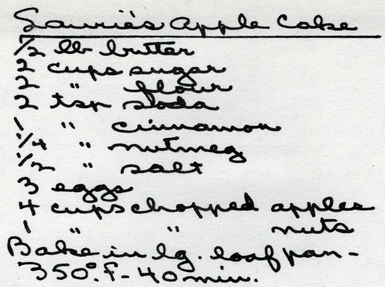 Laurie's Apple Cake
1/2 lb butter
2 cups sugar
2 " flour
2 tsp soda
1 " cinnamon
1/4 " nutmeg
1/2 " salt
3 eggs
4 cups chopped apples
1 " " nuts
Bake in lg. loaf pan -
350°. f - 40 min.